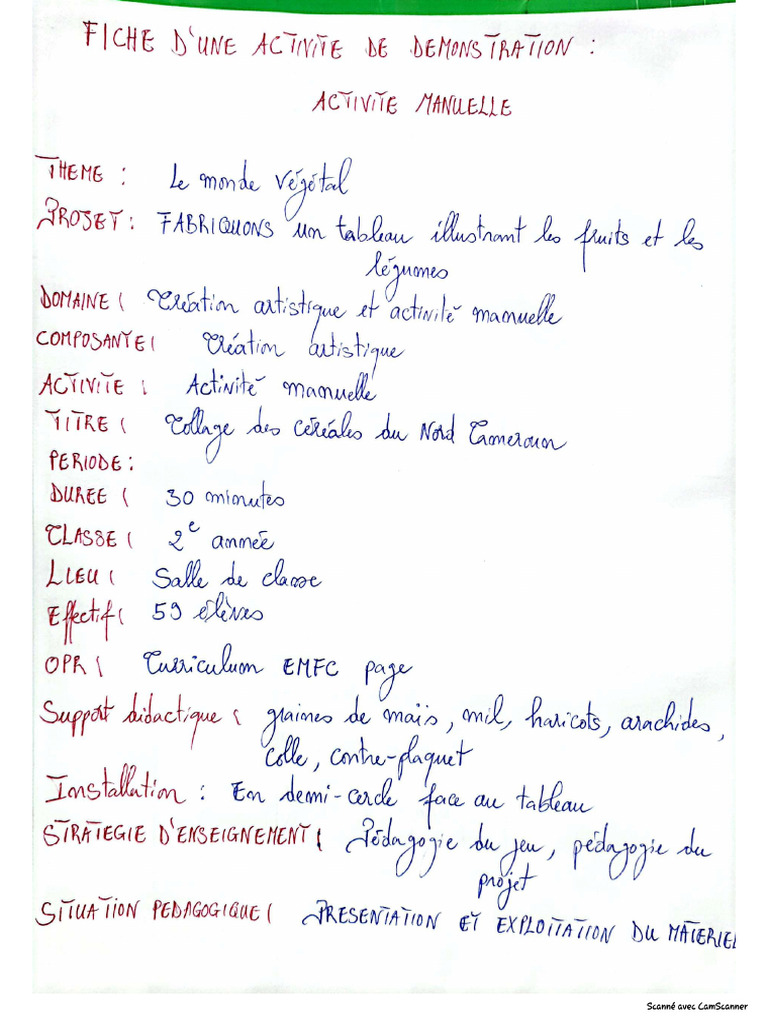 FICHE D'UNE ACTIVITE DE DEMONSTRATION :
ACTIVITE MANUELLE
THEME : Le monde végétal
PROJET : FABRIQUONS un tableau illustrant les fruits et les
légumes
DOMAINE : Création artistique et activité manuelle
COMPOSANTE : Création artistique
ACTIVITE : Activité manuelle
TITRE : Collage des céréales du Nord Cameroun
PERIODE :
DUREE : 30 minutes
CLASSE : 2e année
LIEU : Salle de classe
Effectif : 59 élèves
OPR : Curriculum EMFC page
Support didactique : graines de maïs, mil, haricots, arachides,
colle, contre-plaquet
Installation : En demi-cercle face au tableau
STRATEGIE D'ENSEIGNEMENT : Pédagogie du jeu, pédagogie du
projet
SITUATION PEDAGOGIQUE : PRESENTATION ET EXPLOITATION DU MATERIEL
Scanné avec CamScanner